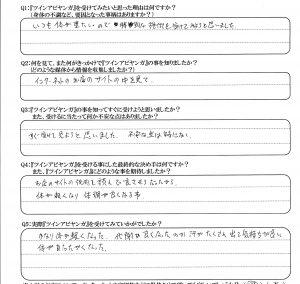 Q1:『ツインアビヤンガ』を受けてみたいと思った理由は何ですか?
(身体の不調など、要因となった事柄はありますか?)
いつも体が重たいので 特別な 施術を 受けて みようと思いました。
Q2:何を見て、また何がきっかけで『ツインアビヤンガ』の事を知りましたか?
(どのような媒体から情報を収集しましたか?)
インターネットの お店のサイトの中を見て。
Q3:『ツインアビヤンガ』の事を知ってすぐに受けようと思いましたか?
また、受けるに当たって何か不安な点はありましたか?
すぐ受けて見ようと 思いました。 不安な点は特になし。
Q4:『ツインアビヤンガ』を受ける事にした最終的な決め手は何ですか?
また、『ツインアビヤンガ』にどのような事を期待しましたか?
お店のサイトの説明を読んで
体が軽くなり 体調が良くなる事
Q5:実際『ツインアビヤンガ』を受けてみていかがでしたか?
かなり体が軽くなった。代謝が良くなったのか汗がたくさん出て気持ちが良い
体が